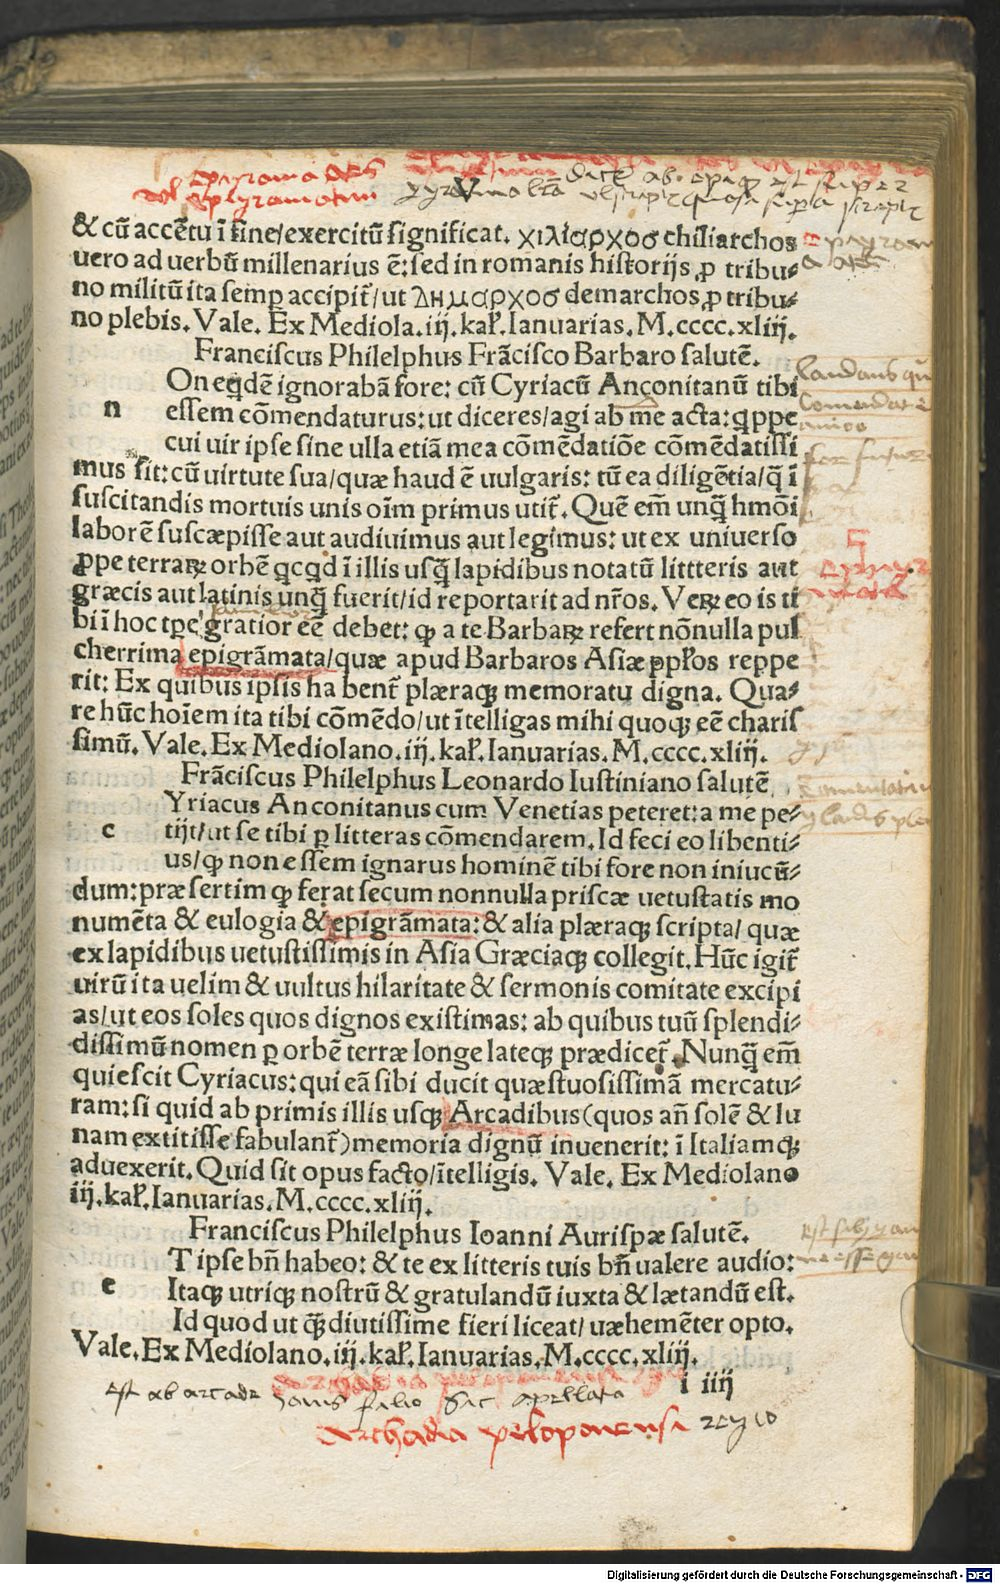 epigrama atis
vel epigramatum
dicit ab . epi est super
& cū accētu ī fine/exercitū significat. χιλίαρχοσ chiliarchos
uero ad uerbū millenarius ē: sed in romanis historijs ꝓ tribu⸗
no militū ita semꝑ accipit̄/ut δημαρχοσ demarchos ꝓ tribu⸗
no plebis. Vale. Ex Mediola. iij. kał. Ianuarias. M. cccc. xliij.
Franciscus Philelphus Frācisco Barbaro salutē.
On eq̇dē ignorabā fore: cū Cyriacū Anconitanū tibi
n essem cōmendaturus: ut diceres/agi ab me acta: q̇ppe
cui uir ipse sine ulla etiā mea cōmēdatiōe cōmēdatissi
mus sit: cū uirtute sua/quæ haud ē uulgaris: tū ea diligētia/q̄ ī
suscitandis mortuis unis oīm primus utit̄. Quē em̄ unq̄ hmōi
laborē suscæpisse aut audiuimus aut legimus: ut ex uniuerso
ꝓpe terraꝝ orbē q̇cq̇d ī illis usq̄ lapidibus notatū littteris aut
græcis aut latinis unq̄ fuerit/id reportarit ad nr̄os. Veꝝ eo is ti
bi ī hoc tꝑe gratior eē debet: ꝙ a te Barbaꝝ refert nōnulla pul
cherrima epigrāmata/quæ apud Barbaros Asiæ ꝓpłos reppe
rit: Ex quibus ipsis habent̄ plæraqꝫ memoratu digna. Qua⸗
re hūc hoīem ita tibi cōmēdo/ut ītelligas mihi quoqꝫ eē charis
simū. Vale. Ex Mediolano. iij. kał. Ianuarias. M. cccc. xliij.
Frāciscus Philelphus Leonardo Iustiniano salutē.
Yriacus Anconitanus cum Venetias peteret: a me pe⸗
c tijt/ut se tibi ꝑ litteras cōmendarem. Id feci eo libenti⸗
us/ꝙ non essem ignarus hominē tibi fore non iniucū⸗
dum: præsertim ꝙ ferat secum nonnulla priscæ uetustatis mo
numēta & eulogia & epigrāmata: & alia plæraqꝫ scripta/ quæ
ex lapidibus uetustissimis in Asia Græciaqꝫ collegit. Hūc igit̄
uirū ita uelim & uultus hilaritate & sermonis comitate excipi
as/ut eos soles quos dignos existimas: ab quibus tuū splendi⸗
dissimū nomen ꝑ orbē terræ longe lateqꝫ prædicet̄. Nunq̄ em̄
quiescit Cyriacus: qui eā sibi ducit quæstuosissimā mercatu⸗
ram: si quid ab primis illis usqꝫ Arcadibus (quos an̄ solē & lu
nam extitisse fabulant̄) memoria dignū inuenerit: ī Italiamqꝫ
aduexerit. Quid sit opus facto/ītelligis. Vale. Ex Mediolano
iij. kał. Ianuarias. M. cccc. xliij.
Franciscus Philelphus Ioanni Aurispæ salutē.
T ipse bn̄ habeo: & te ex litteris tuis bn̄ ualere audio:
e Itaqꝫ utriqꝫ nostrū & gratulandū iuxta & lætandū est.
Id quod ut q̄ diutissime fieri liceat/ uæhemēter opto.
Vale. Ex Mediolano. iij. kał. Ianuarias. M. cccc. xliij.
i iiij
est ab arcade Iovis filio sic apellata
Archadia peloponensi regio
Digitalisierung gefördert durch die Deutsche Forschungsgemeinschaft - DFG